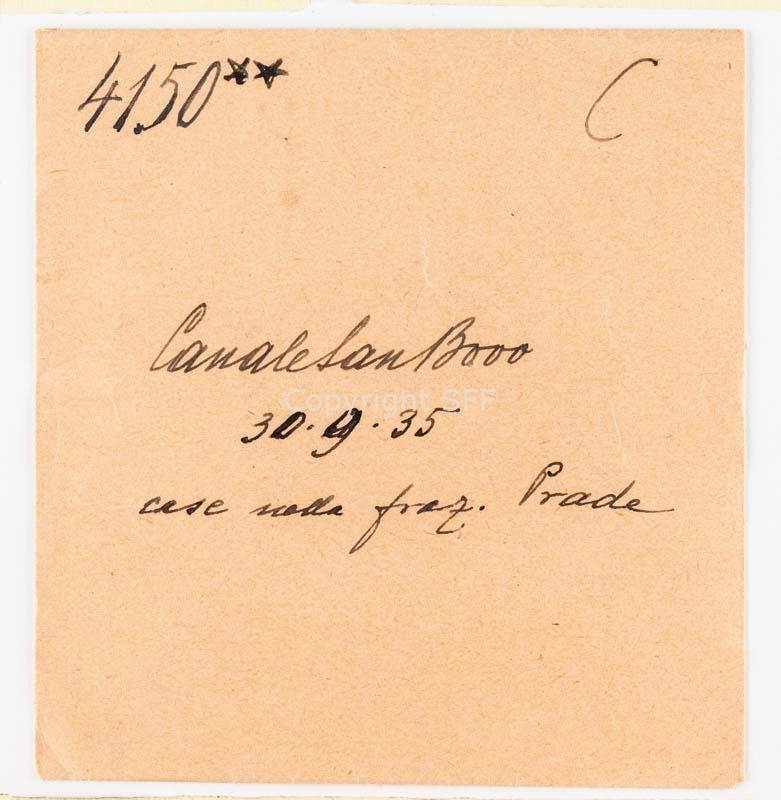 4150** C
Canale San Bovo
Copyright SFF
30.9.35
case nella fraz. Prade